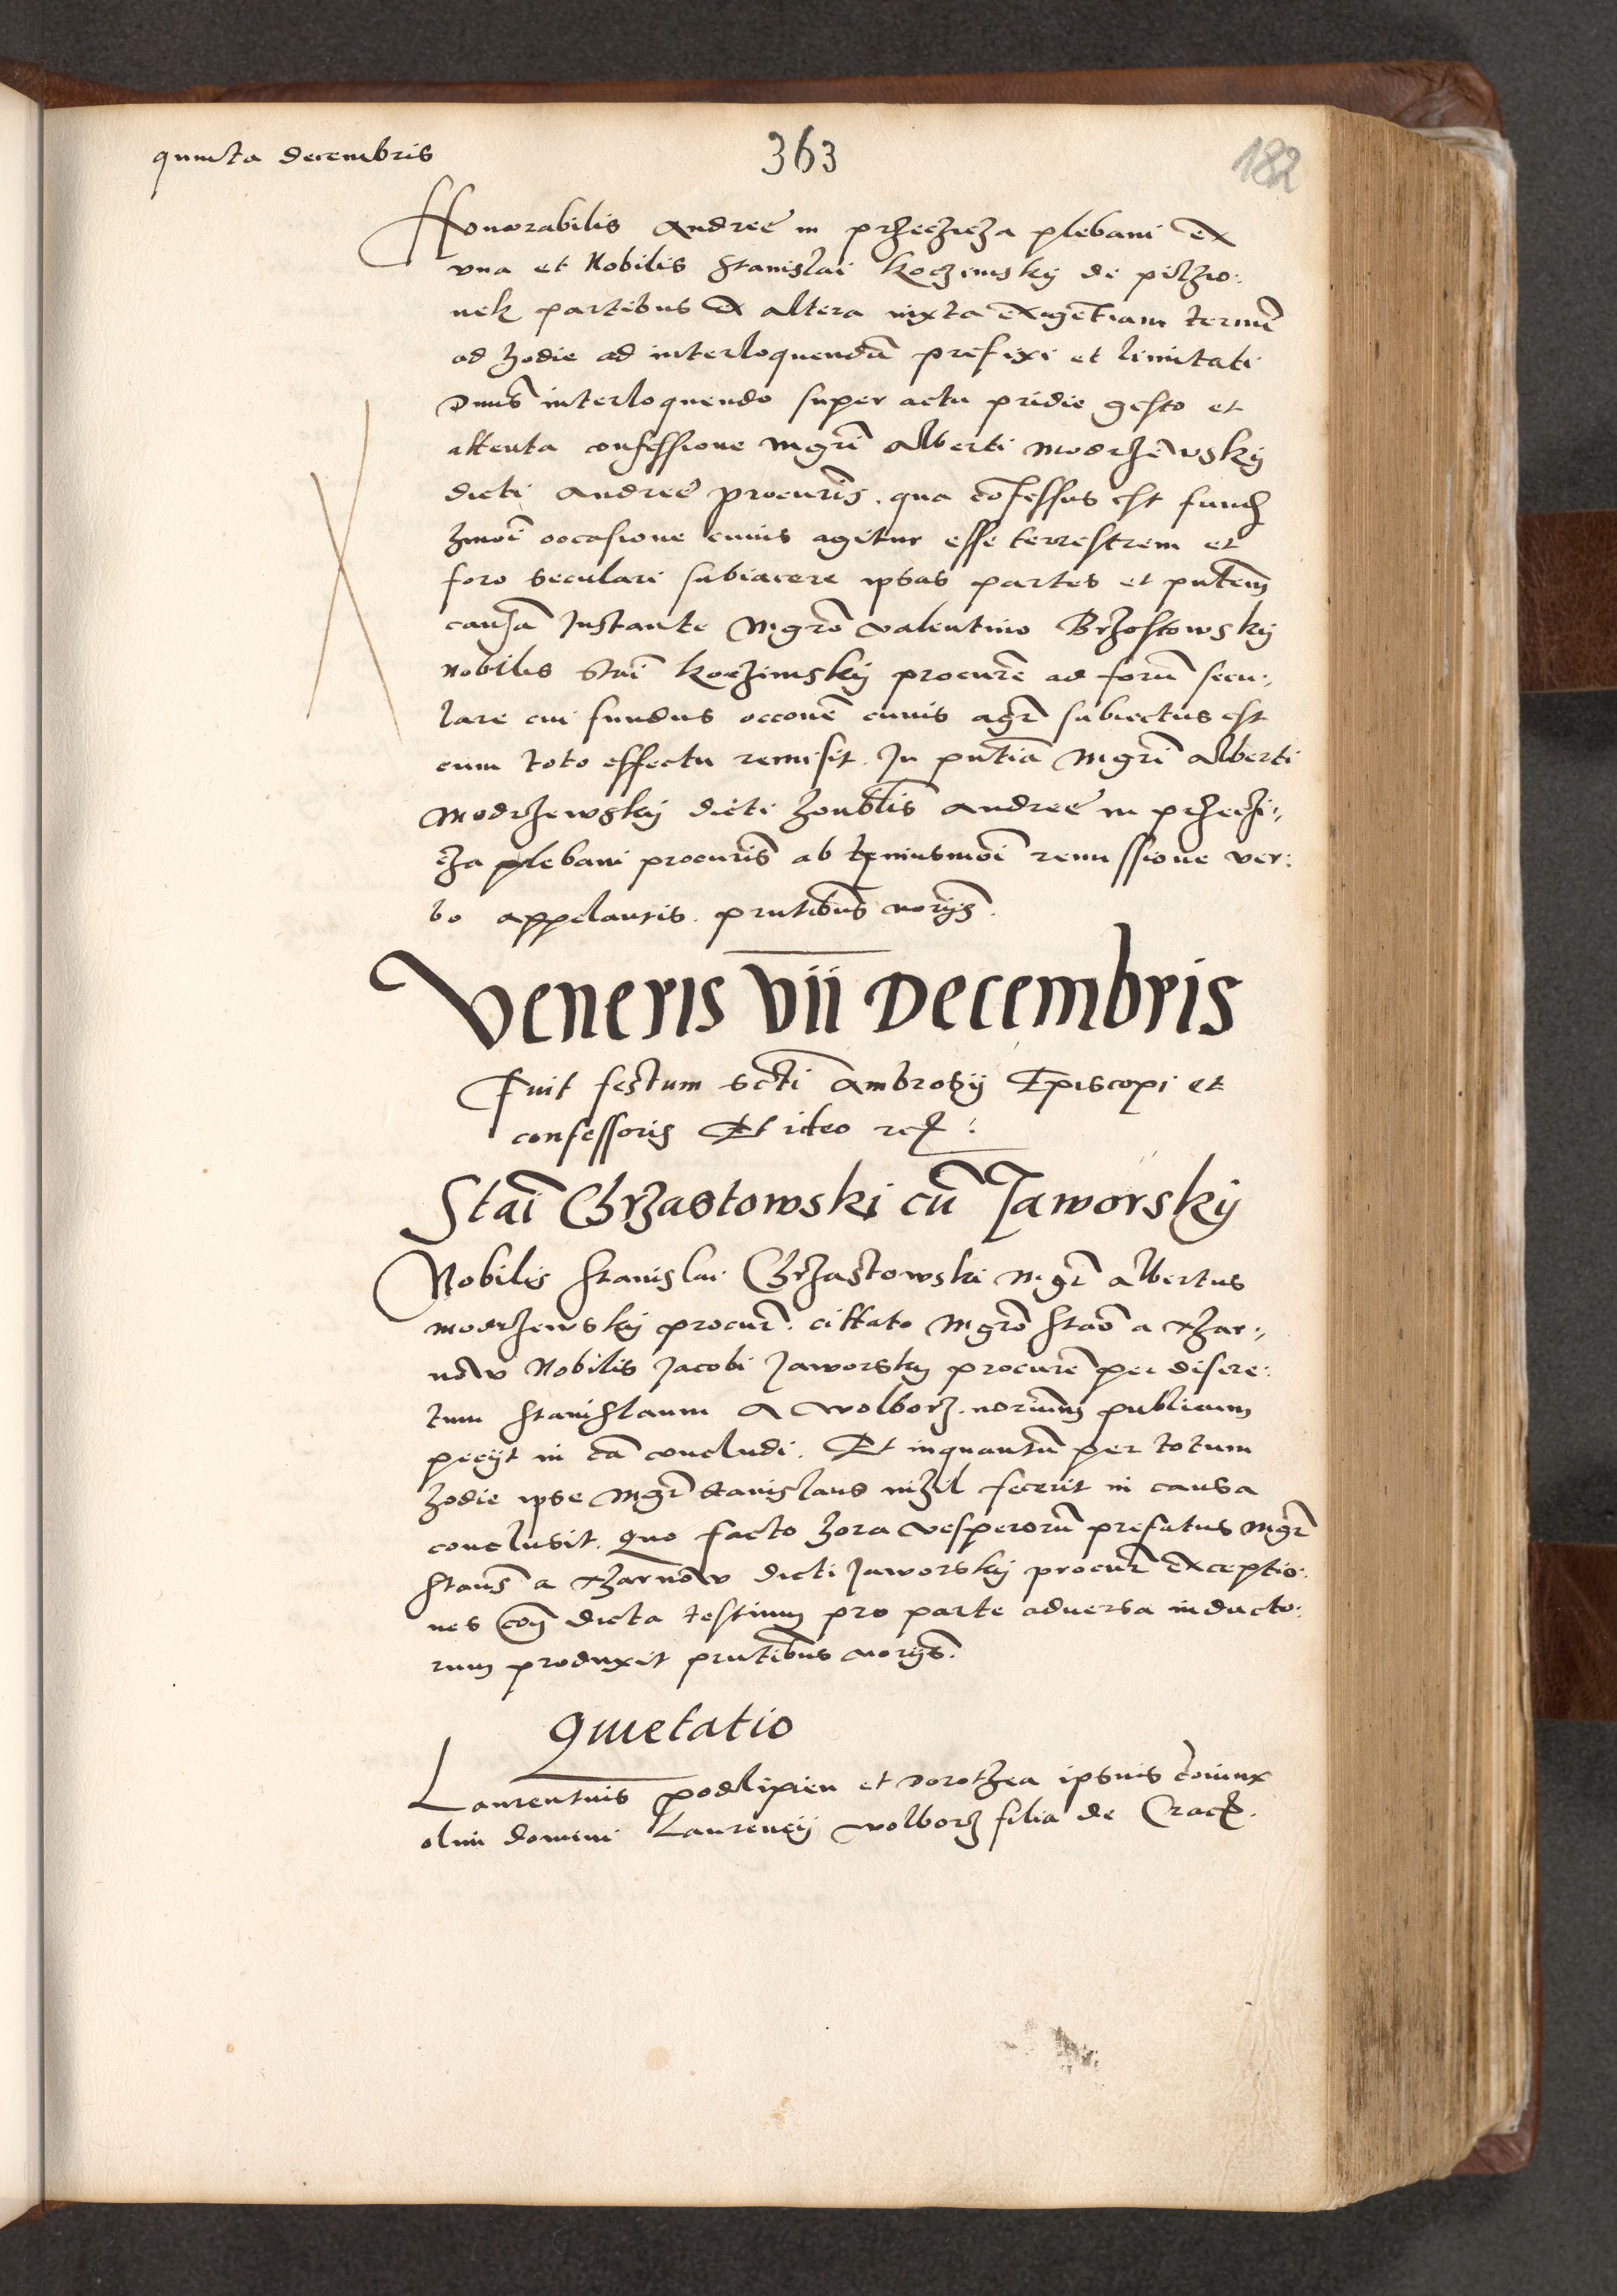 quinta decembris
363
182
Honorabilis Andree in przeczicza plebani ex
vna et Nobilis Stanislai Koczinsky de pilzio:
nek partibus ex altera iuxta exigētiam termī
ad hodie ad interloquendū prefixi et limitati
Dnus̄ interloquendo super actu pridie gesto et
attenta confessione mgrī Alberti Modrzewsky
dicti Andree procurīs. qua cōfessus est fund
hmōi occasione cuius agitur esse terrestrem et
foro seculari subiacere ipsas partes et pn̄tem
causā Instante Mgrō Valentino Brzostowsky
nobilis Staī Koczinsky procurē ad forū secu:,
lare cui fundus occonē cuius agr̄ subiectus est
cum toto effectu remisit. In pn̄tia Mgrī Alberti
Modrzewsky dicti honblis Andree in przeczi:,
cza plebani procuris ab huiusmōi remissione ver:
bo appelantis. pn̄tibus norijs.
Veneris vii Decembris
Fuit festum sctī Ambrosij Episcopi et
confessoris Et ideo &c:
Staī Chrzastowski cū Jaworsky
Nobilis Stanislai Chrzastowski mgr̄ Albertus
modrzewsky procur. cittato Mgrō Staō a xzar:,
now Nobilis Jacobi Jaworsky procurē per discre:
tum Stanislaum A wolborz. norium publicum
pecijt in cā concludi. Et inquantū per totum
hodie ipse Mgr̄ Stanislaus nihil fecerit in causa
conclusit. Quo facto hora vesperorū prefatus Mgr̄
Staus̄ a xzarnow dicti Jaworsky procur̄ exceptio:
nes con̄ dicta testium pro parte aduersa inducto:
rum produxit pn̄tibus norijs.
Quietatio
Laurentius podlipien et Dorothea ipsius cōiunx
olim domini Laurencij wolborz filia de Crac.